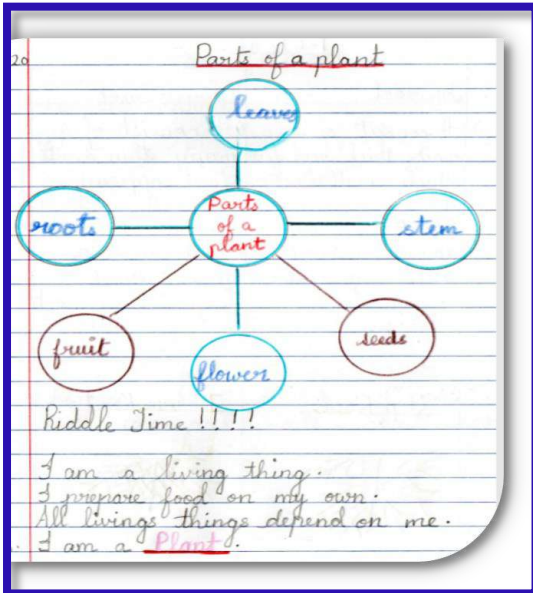 20
Parts of a plant
leaves
roots
Parts
of a
plant
stem
fruit
flower
seeds
Riddle Time !!!!
I am a living thing.
I prepare food on my own.
All livings things depend on me.
I am a Plant.